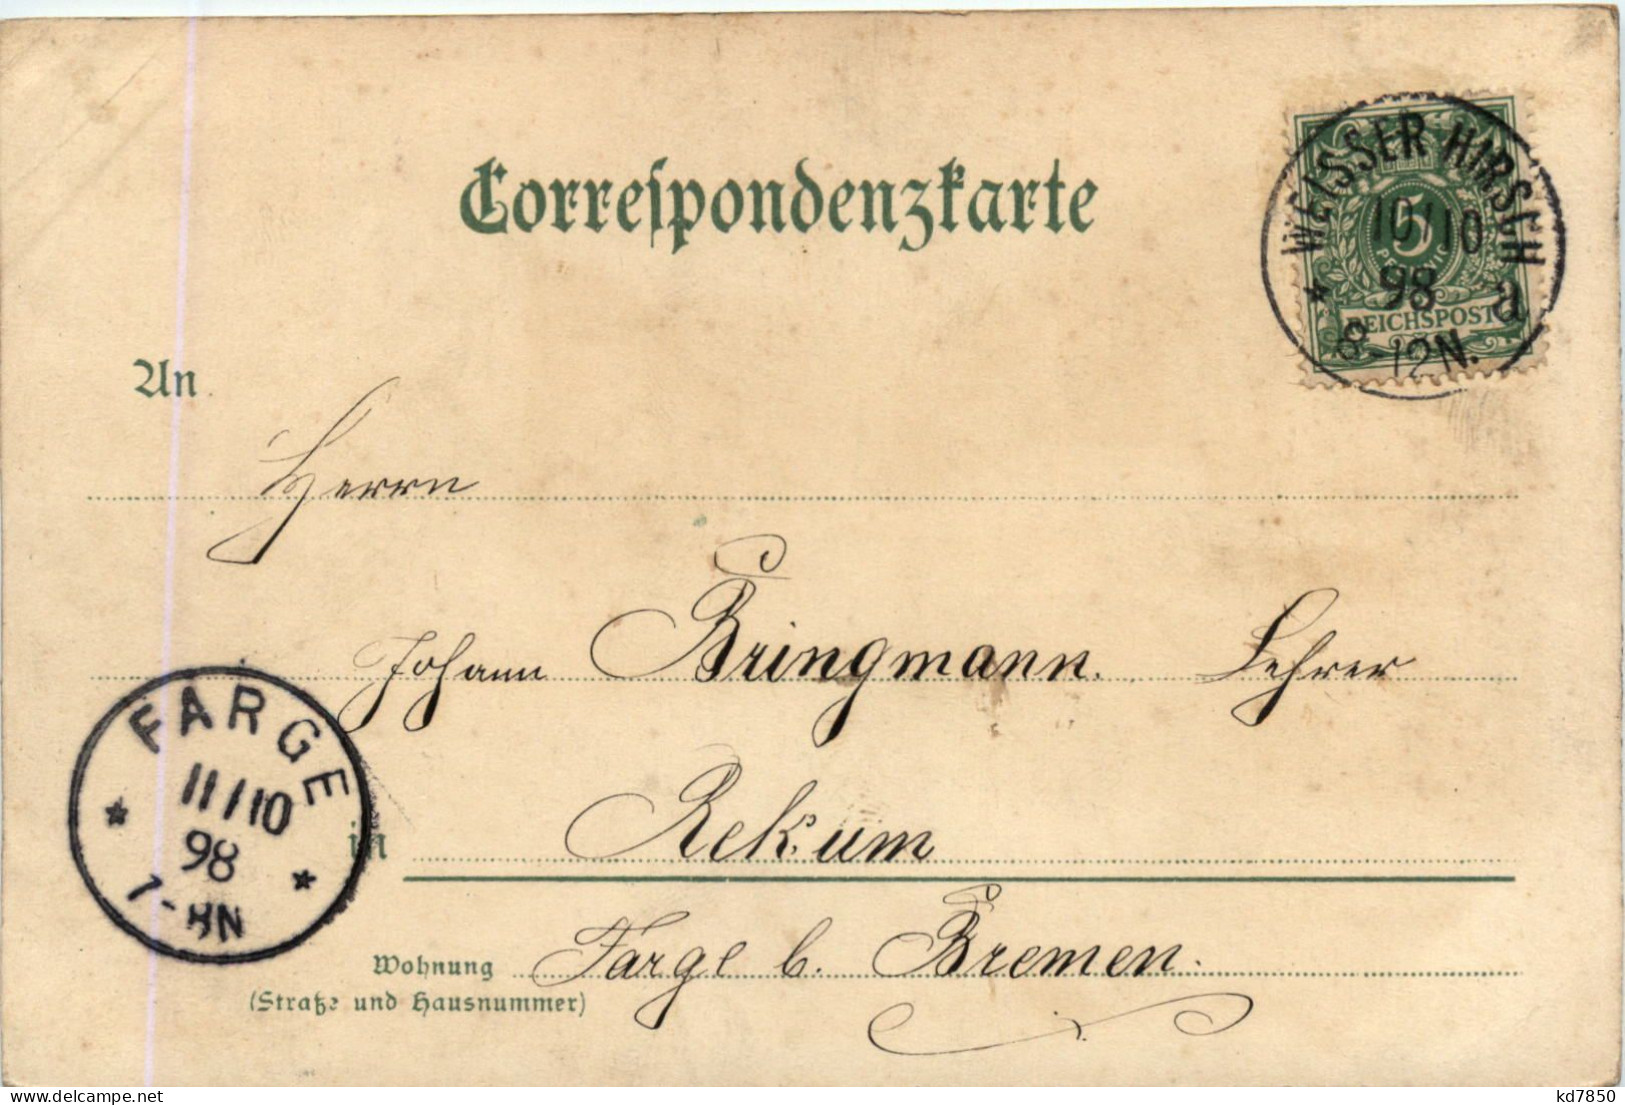 Correspondenzkarte
WEISSER HIRSCH
10/10
98
a
8-12N.
5
PFENNIG
REICHSPOST
An
Herrn
Johann Bringmann. Lehrer
FARGE
11/10
98
7-8N
in Rekum
Wohnung Farge b. Bremen.
(Straße und Hausnummer)
delcampe.net
kd7850